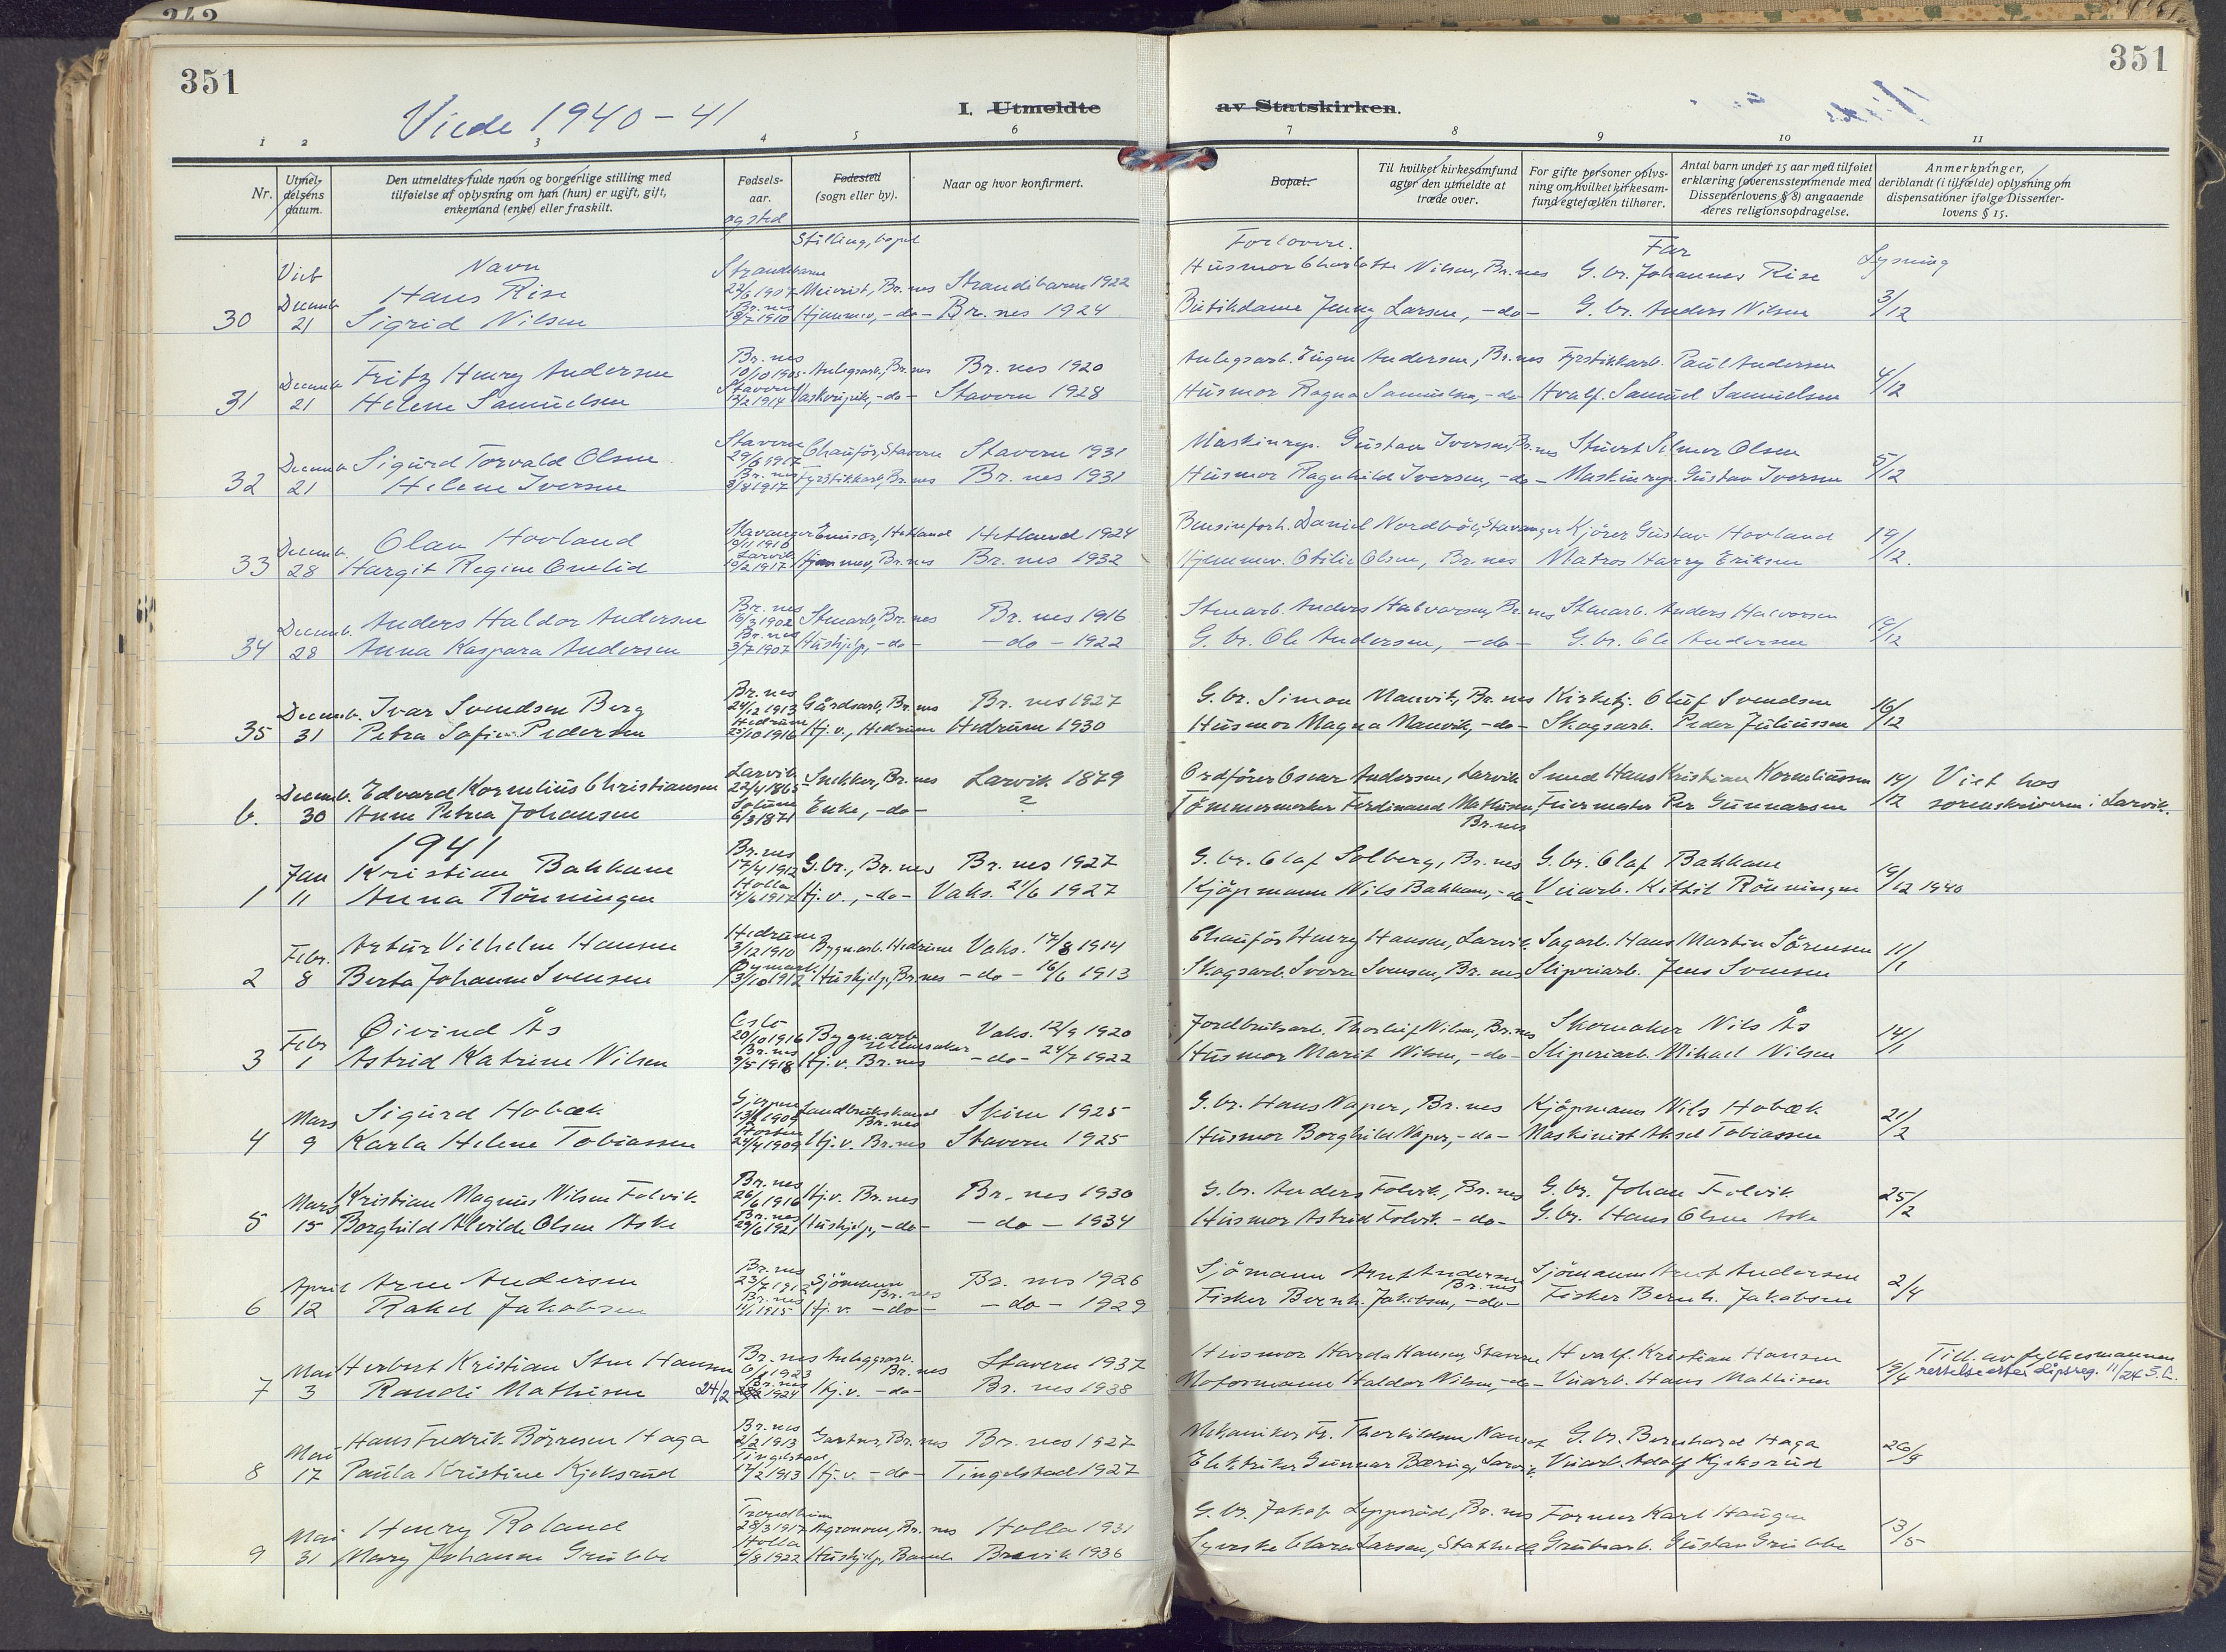 351
351
Viede 1940-41
I. Utmeldte av Statskirken.
1 2 3 4 5 6 7 8 9 10 11
Nr. Utmeldelsens datum. Den utmeldtes fulde navn og borgerlige stilling med tilføielse af oplysning om han (hun) er ugift, gift, enkemand (enke) eller fraskilt. Fødselsaar. og sted Fødested (sogn eller by). Naar og hvor konfirmert. Bopæl. Til hvilket kirkesamfund agter den utmeldte at træde over. For gifte personer oplysning om hvilket kirkesamfund egtefællen tilhører. Antal barn under 15 aar med tilføiet erklæring (overensstemmende med Dissenterlovens § 8) angaaende deres religionsopdragelse. Anmerkninger, deriblandt (i tilfælde) oplysning om dispensationer ifølge Dissenterlovens § 15.
Viet Navn Stilling, bopel Forlovere. Far Lysning
Decemb. Hans Rise Strandebarm 22/6 1907 Meierist, Br.nes Strandebarm 1922 Husmor Charlotte Nilsen, Br.nes G.br. Johannes Rise
30 21 Sigrid Nilsen Br.nes 1910 Hjemmev., -do- Br.nes 1924 Butikdame Jenny Larsen, -do- G.br. Anders Nilsen 3/12
Decemb. Fritz Henry Andersen Br.nes 10/10 1905 Anlegsarb., Br.nes Br.nes 1920 Anlegsarb. Eugen Andersen, Br.nes Fyrstikkarb. Paul Andersen
31 21 Helene Samuelsen Stavern 12/2 1914 Vaskeripike, -do- Stavern 1928 Husmor Ragna Samuelsen, -do- Hvalf. Samuel Samuelsen 4/12
Decemb. Sigurd Torvald Olsen Stavern 29/6 1917 Chauför, Stavern Stavern 1931 Maskinrep. Gustav Iversen, Br.nes Stuert Selmer Olsen
32 21 Helene Iversen Br.nes 3/8 1917 Fyrstikkarb., Br.nes Br.nes 1931 Husmor Ragnhild Iversen, -do- Maskinrep. Gustav Iversen 5/12
Decemb. Olav Hovland Stavanger 19/11 1910 Emissær, Hetland Hetland 1924 Bensinforh. Daniel Nordbö, Stavanger Kjörer Gustav Hovland
33 28 Hargit Regine Omlid Larvik 10/2 1917 Hjemmev., Br.nes Br.nes 1932 Hjemmev. Otilie Olsen, Br.nes Matros Harry Eriksen 19/12.
Decemb. Anders Haldor Andersen Br.nes 16/3 1902 Stenarb., Br.nes Br.nes 1916 Stenarb. Anders Halvorsen, Br.nes Stenarb. Anders Halvorsen
34 28 Anna Kaspara Andersen Br.nes 3/7 1907 Hushjelp, -do- -do- 1922 G.br. Ole Andersen, -do- G.br. Ole Andersen 19/12
Decemb. Ivar Svendsen Berg Br.nes 24/12 1913 Gårdsarb., Br.nes Br.nes 1927 G.br. Simon Manvik, Br.nes Kirketj. Oluf Svendsen
35 31 Petra Sofie Pedersen Hedrum 25/10 1916 Hj.v., Hedrum Hedrum 1930 Husmor Magna Manvik, -do- Skogsarb. Peder Juliussen 16/12
Decemb. Edvard Kornelius Christiansen Larvik 22/4 1865 Snekker, Br.nes Larvik 1879 Ordförer Oscar Andersen, Larvik Smed Hans Kristian Korneliussen 14/12 Viet hos
b. 30 Anne Petrea Johansen Solum 6/3 1871 Enke, -do- ? Tömmermerker Ferdinand Mathisen, Br.nes Feiermester Per Gunnarsen sorenskriveren i Larvik.
1941
Jan Kristian Bakkane Br.nes 17/4 1912 G.br., Br.nes Br.nes 1927 G.br. Olaf Solberg, Br.nes G.br. Olaf Bakkane
1 11 Anna Rönningen Holla 14/6 1917 Hj.v., -do- Vaks. 2/6 1927 Kjöpmann Nils Bakkane, -do- Veiarb. Kittil Rönningen 19/12 1940
Febr. Artur Vilhelm Hansen Hedrum 3/12 1910 Bygn.arb. Hedrum Vaks. 17/8 1914 Chauför Henry Hansen, Larvik Sagarb. Hans Martin Sörensen
2 8 Berta Johanne Svensen Öymark 13/10 1912 Hushjelp, Br.nes -do- 16/6 1913 Skogsarb. Sverre Svensen, Br.nes Sliperiarb. Jens Svensen 11/1
Febr Øivind Ås Oslo 20/10 1916 Bygn.arb. Ullensaker Vaks. 12/9 1920 Jordbruksarb. Thorleif Nilsen, Br.nes Skomaker Nils Ås
3 1 Astrid Katrine Nilsen Br.nes 9/5 1918 Hj.v. Br.nes -do- 24/7 1922 Husmor Marit Nilsen, -do- Sliperiarb. Mikael Nilsen 14/1
Mars Sigurd Hobæk Gjerpen 1909 Landbrukskand. Br.nes Skien 1925 G.br. Hans Naper, Br.nes Kjöpmann Nils Hobæk
4 9 Karla Helene Tobiassen Horten 24/4 1909 Hj.v. Br.nes Stavern 1925 Husmor Borghild Naper, -do- Maskinist Aksel Tobiassen 21/2
Mars Kristian Magnus Nilsen Folvik Br.nes 26/6 1916 Hj.v. Br.nes Br.nes 1930 G.br. Anders Folvik, Br.nes G.br. Johan Folvik
5 15 Borghild Alvilde Olsen Aske Br.nes 29/6 1921 Hushjelp, -do- -do- 1934 Husmor Astrid Folvik -do- G.br. Hans Olsen Aske 25/2
April Arne Andersen Br.nes 23/7 1912 Sjömann Br.nes Br.nes 1926 Sjömann Arnt Andersen Br.nes Sjömann Arnt Andersen
6 12 Rakel Jakobsen Br.nes 1915 Hj.v. -do- -do- 1929 Fisker Bernh. Jakobsen, -do- Fisker Bernh. Jakobsen 2/4
Mai Herbert Kristian Stene Hansen Br.nes 1923 Anleggsarb. Br.nes Stavern 1937 Husmor Harda Hansen, Stavern Hvalf. Kristian Hansen Till. av fylkesmannen
7 3 Randi Mathisen 24/2 Br.nes 1924 Hj.v. -do- Br.nes 1938 Motormann Haldor Nilsen, -do- Veiarb. Hans Mathisen 19/4 rettelse etter dåpsreg. 11/24
Mai Hans Fredrik Börresen Haga Br.nes 2/2 1913 Gartner, Br.nes Br.nes 1927 Mekaniker Fr. Thorkildsen, Nanset G.br. Bernhard Haga
8 17 Paula Kristine Kjeksrud Tingelstad 12/2 1913 Hj.v. -do- Tingelstad 1927 Elektriker Gunnar Bæringe Larvik Veiarb. Adolf Kjeksrud 26/
Mai Henry Roland Trondheim 28/3 1917 Agronom, Br.nes Holla 1931 G.br. Jakob Lepperöd, Br.nes Former Karl Haugen
9 31 Mary Johanne Grubbe Holla 6/8 1922 Hushjelp, Bamble Brevik 1936 Syerske Clara Larsen, Stathelle Grubearb. Gustav Grubbe 13/5